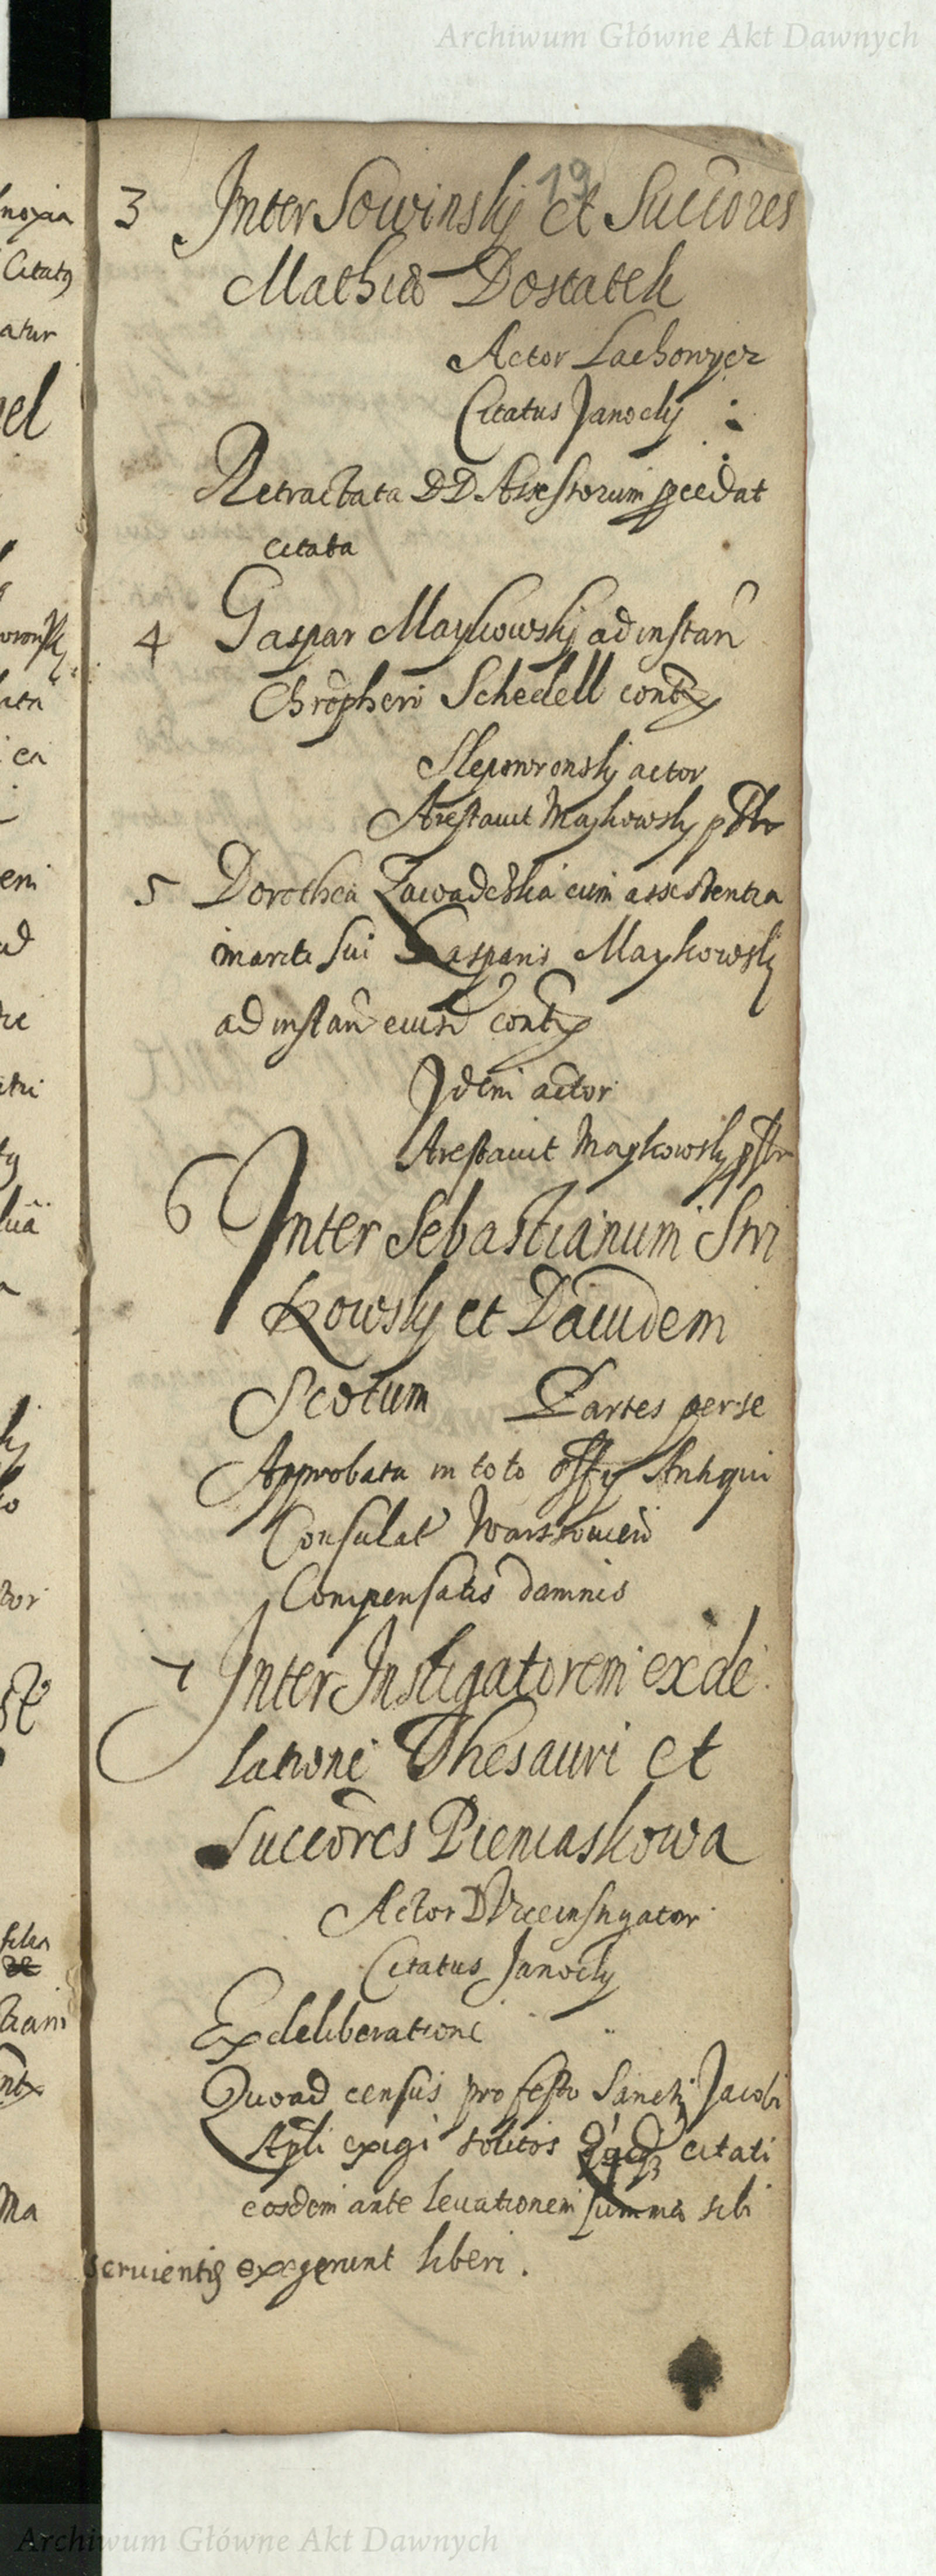 Archiwum Główne Akt Dawnych
19
3 Inter Sowinsky et Succores
Mathiæ Dostatek
Actor Lachowycz
Citatus Janocky
Retractata DD Assessorum pcedat
citata
4 Gaspar Maykowsky ad instan
Chropheri Schedell contx
Slepowronsky actor
Arestauit Maykowsky
5 Dorothea Zawadcskia cum assestentia
mariti sui Gasparis Maykowsky
ad instan eiusd contx
Idem actor
Arestauit Maykowsky
6 Inter Sebastianum Stri
kowsky et Dauidem
Scotum Partes per se
Approbata in toto offy Antiqui
Consulat Warssouien
Compensatis damnis
7 Inter Instigatorem ex de
latione Thesauri et
Succores Pieniaskowa
Actor D Viceinstigator
Citatus Janocky
Ex deliberatione
Quoad census pro festo Sancti Jacobi
Apli exigi solitos citati
eosdem ante leuationem summæ sibi
seruientis exegerunt liberi.
Archiwum Główne Akt Dawnych